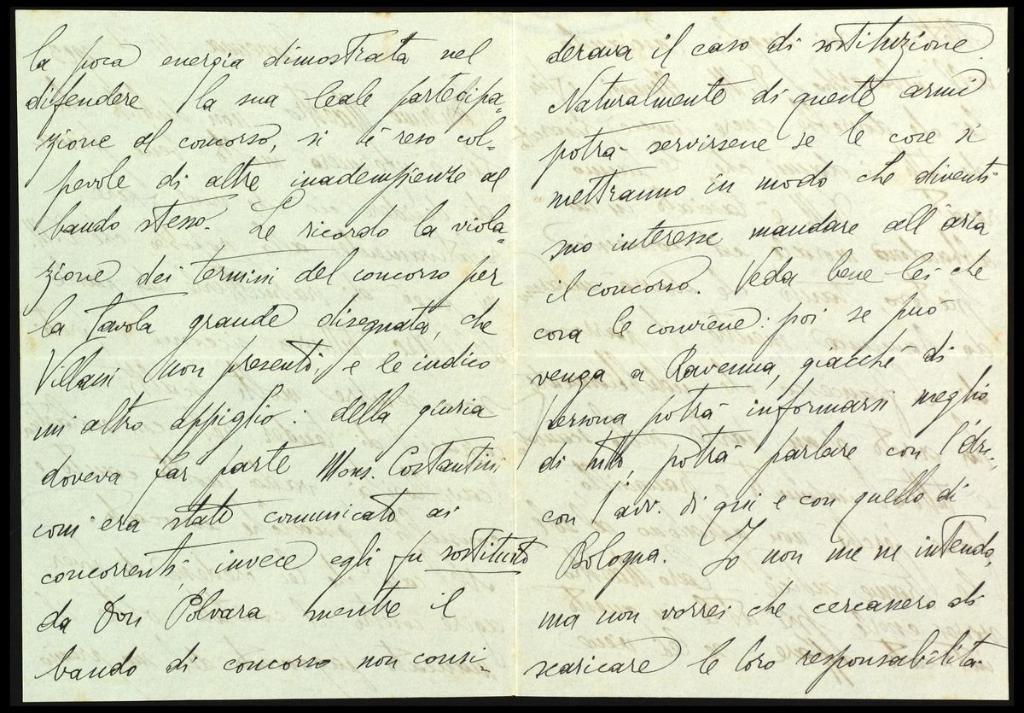 la poca energia dimostrata nel
difendere la sua leale partecipa-
zione al concorso, si è reso col-
pevole di altre inadempienze al
bando stesso. Le ricordo la viola-
zione dei termini del concorso per
la tavola grande disegnata, che
Villani non presentò, e le indico
un altro appiglio: della giuria
doveva far parte Mons. Costantini
com'era stato comunicato ai
concorrenti, invece egli fu sostituito
da Don Polvara mentre il
bando di concorso non consi-
derava il caso di sostituzione.
Naturalmente di queste armi
potrà servirsene se le cose si
mettranno in modo che diventi
suo interesse mandare all'aria
il concorso. Veda bene lei che
cosa le conviene: poi se può
venga a Ravenna, giacché di
persona potrà informarsi meglio
di tutto, potrà parlare con l'
con l'avv. di qui e con quello di
Bologna. Io non me ne intendo,
ma non vorrei che cercassero di
scaricare le loro responsabilità